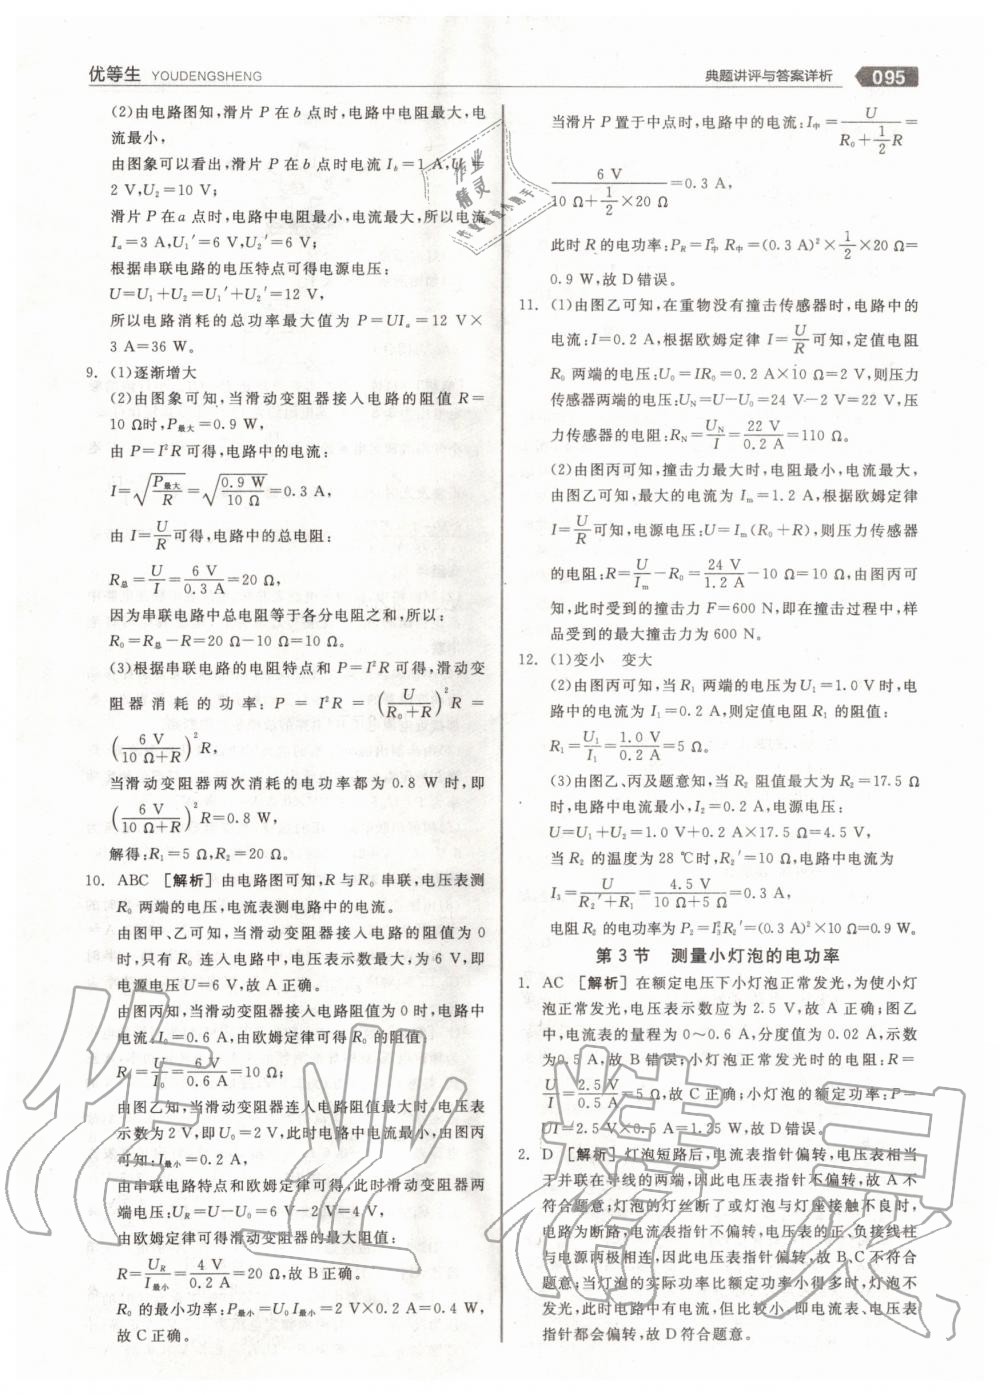 优等生 YOUDENGSHENG
典题讲评与答案详析 095
(2)由电路图知,滑片 P 在 b 点时,电路中电阻最大,电
流最小,
由图象可以看出,滑片 P 在 b 点时电流 I_b=1 A,U_1=
2 V,U_2=10 V;
滑片 P 在 a 点时,电路中电阻最小,电流最大,所以电流
I_a=3 A,U_1′=6 V,U_2′=6 V;
根据串联电路的电压特点可得电源电压:
U=U_1+U_2=U_1′+U_2′=12 V,
所以电路消耗的总功率最大值为 P=UI_a=12 V×
3 A=36 W。
9. (1)逐渐增大
(2)由图象可知,当滑动变阻器接入电路的阻值 R=
10 Ω时,P_最大=0.9 W,
由 P=I²R 可得,电路中的电流:
I=√(P_最大/R)=√(0.9 W/10 Ω)=0.3 A,
由 I=U/R 可得,电路中的总电阻:
R_总=U/I=6 V/0.3 A=20 Ω,
因为串联电路中总电阻等于各分电阻之和,所以:
R_0=R_总-R=20 Ω-10 Ω=10 Ω。
(3)根据串联电路的电阻特点和 P=I²R 可得,滑动变
阻器消耗的功率:P=I²R=(U/(R_0+R))²R=
(6 V/(10 Ω+R))²R,
当滑动变阻器两次消耗的电功率都为 0.8 W 时,即
(6 V/(10 Ω+R))²R=0.8 W,
解得:R_1=5 Ω,R_2=20 Ω。
10. ABC [解析]由电路图可知,R 与 R_0 串联,电压表测
R_0 两端的电压,电流表测电路中的电流。
由图甲、乙可知,当滑动变阻器接入电路的阻值为 0
时,只有 R_0 连入电路中,电压表示数最大,为 6 V,即
电源电压 U=6 V,故 A 正确。
由图丙知,当滑动变阻器接入电路阻值为 0 时,电路中
电流 I_0=0.6 A,由欧姆定律可得 R_0 的阻值:
R_0=U/I_0=6 V/0.6 A=10 Ω;
由图乙知,当滑动变阻器连入电路阻值最大时,电压表
示数为 2 V,即 U_0=2 V,此时电路中电流最小,由图丙
可知:I_最小=0.2 A,
由串联电路特点和欧姆定律可得,此时滑动变阻器两
端电压:U_R=U-U_0=6 V-2 V=4 V,
由欧姆定律可得滑动变阻器的最大阻值:
R=U_R/I_最小=4 V/0.2 A=20 Ω,故 B 正确。
R_0 的最小功率:P_最小=U_0I_最小=2 V×0.2 A=0.4 W,
故 C 正确。
当滑片 P 置于中点时,电路中的电流:I_中=U/(R_0+1/2R)
6 V/(10 Ω+1/2×20 Ω)=0.3 A,
此时 R 的电功率:P_R=I_中²R_中=(0.3 A)²×1/2×20 Ω=
0.9 W,故 D 错误。
11. (1)由图乙可知,在重物没有撞击传感器时,电路中的
电流:I=0.2 A,根据欧姆定律 I=U/R可知,定值电阻
R_0 两端的电压:U_0=IR_0=0.2 A×10 Ω=2 V,则压力
传感器两端的电压:U_N=U-U_0=24 V-2 V=22 V,压
力传感器的电阻:R_N=U_N/I=22 V/0.2 A=110 Ω。
(2)由图丙可知,撞击力最大时,电阻最小,电流最大,
由图乙可知,最大的电流为 I_m=1.2 A,根据欧姆定律
I=U/R可知,电源电压:U=I_m(R_0+R),则压力传感器
的电阻:R=U/I_m-R_0=24 V/1.2 A-10 Ω=10 Ω,由图丙可
知,此时受到的撞击力 F=600 N,即在撞击过程中,样
品受到的最大撞击力为 600 N。
12. (1)变小 变大
(2)由图丙可知,当 R_1 两端的电压为U_1=1.0 V时,电
路中的电流为 I_1=0.2 A,则定值电阻 R_1 的阻值:
R_1=U_1/I_1=1.0 V/0.2 A=5 Ω。
(3)由图乙、丙及题意知,当 R_2 阻值最大为 R_2=17.5 Ω
时,电路中电流最小,I_2=0.2 A,电源电压:
U=U_1+U_2=1.0 V+0.2 A×17.5 Ω=4.5 V,
当 R_2 的温度为 28 ℃时,R_2′=10 Ω,电路中电流为
I_3=U/(R_2′+R_1)=4.5 V/(10 Ω+5 Ω)=0.3 A,
电阻 R_2 的电功率为 P_2=I_3²R_2′=(0.3 A)²×10 Ω=0.9 W。
第 3 节 测量小灯泡的电功率
1. AC [解析]在额定电压下小灯泡正常发光,为使小灯
泡正常发光,电压表示数应为 2.5 V,故 A 正确;图乙
中,电流表的量程为 0～0.6 A,分度值为 0.02 A,示数
为0.5 A,故 B 错误;小灯泡正常发光时的电阻:R=
U/I=2.5 V/0.5 A=5 Ω,故 C 正确;小灯泡的额定功率:P=
UI=2.5 V×0.5 A=1.25 W,故 D 错误。
2. D [解析]灯泡短路后,电流表指针偏转,电压表相当
于并联在导线的两端,因此电压表指针不偏转,故 A 不
符合题意;灯泡的灯丝断了或灯泡与灯座接触不良时,
电路为断路,电流表指针不偏转,电压表的正、负接线柱
与电源两极相连,因此电压表指针偏转,故 B、C 不符合
题意;当灯泡的实际功率比额定功率小得多时,灯泡不
发光,此时电路中有电流,但比较小,即电流表、电压表
指针都会偏转,故 D 符合题意。
作业精灵